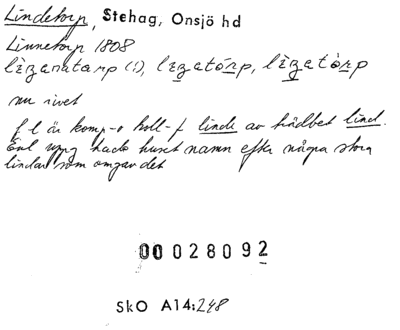 Lindetorp, Stehag, Onsjö hd
Linnetorp 1808
nu rivet
f l är komp-o koll-f linde av trädbet lind.
Enl uppg hade huset namn efter några stora
lindar som omgav det
00 028092
SkO A14:248